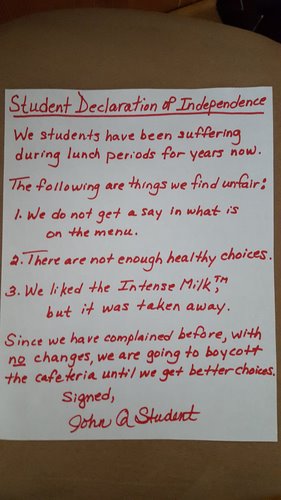 Student Declaration of Independence
We students have been suffering
during lunch periods for years now.
The following are things we find unfair:
1. We do not get a say in what is
on the menu.
2. There are not enough healthy choices.
3. We liked the Intense Milk,™
but it was taken away.
Since we have complained before, with
no changes, we are going to boycott
the cafeteria until we get better choices.
Signed,
John Q Student